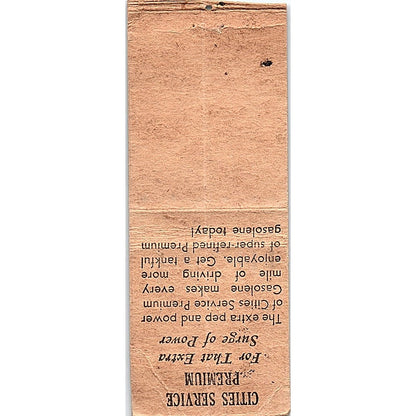 CITIES SERVICE
PREMIUM
For That Extra
Surge of Power
The extra pep and power
of Cities Service Premium
Gasolene makes every
mile of driving more
enjoyable. Get a tankful
of super-refined Premium
gasolene today!